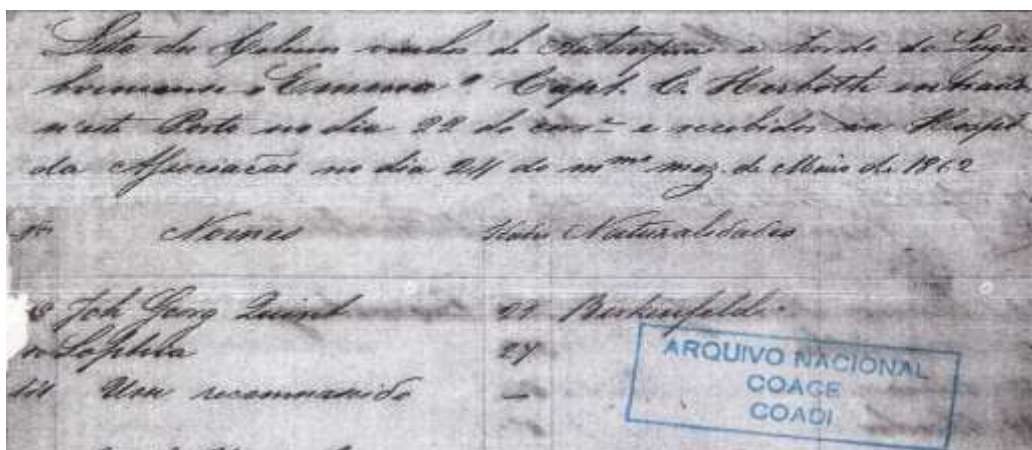 Lista dos Colonos vindos de Antuerpia a bordo do Lugar
"Emma" Capt. C. Herbotth entrado
n'este Porto no dia 22 do corre e recebidos na Hosped
da Associacaõ no dia 24 do mmo mez de Maio de 1862
No Nomes Idades Naturalidades
Joh Georg Quint 27 Birkenfeld
Sophia 24
Um recemnascido —
ARQUIVO NACIONAL
COAGE
COADI